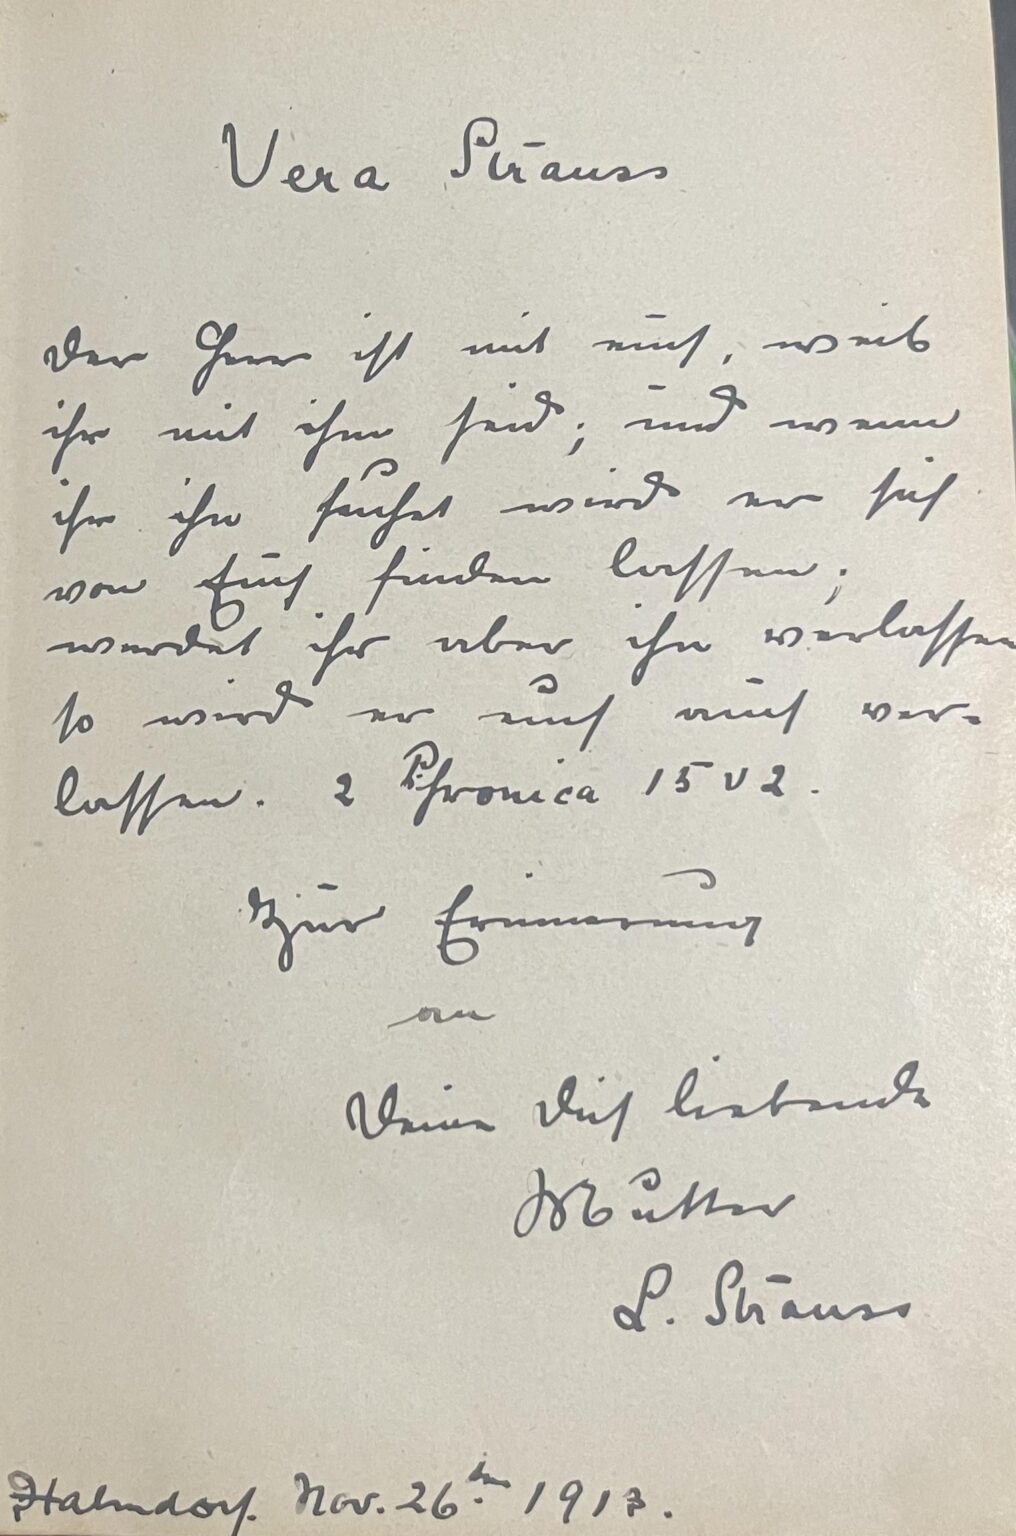 Vera Strauss
Der Herr ist mit euch, weil
ihr mit ihm seid; und wenn
ihr ihn suchet wird er sich
von Euch finden lassen;
werdet ihr aber ihn verlassen
so wird er euch auch ver-
lassen. 2 Chronica 15 v 2.
Zur Erinnerung
an
Deine Dich liebende
Mutter
L. Strauss
Nov. 26ten 1913.